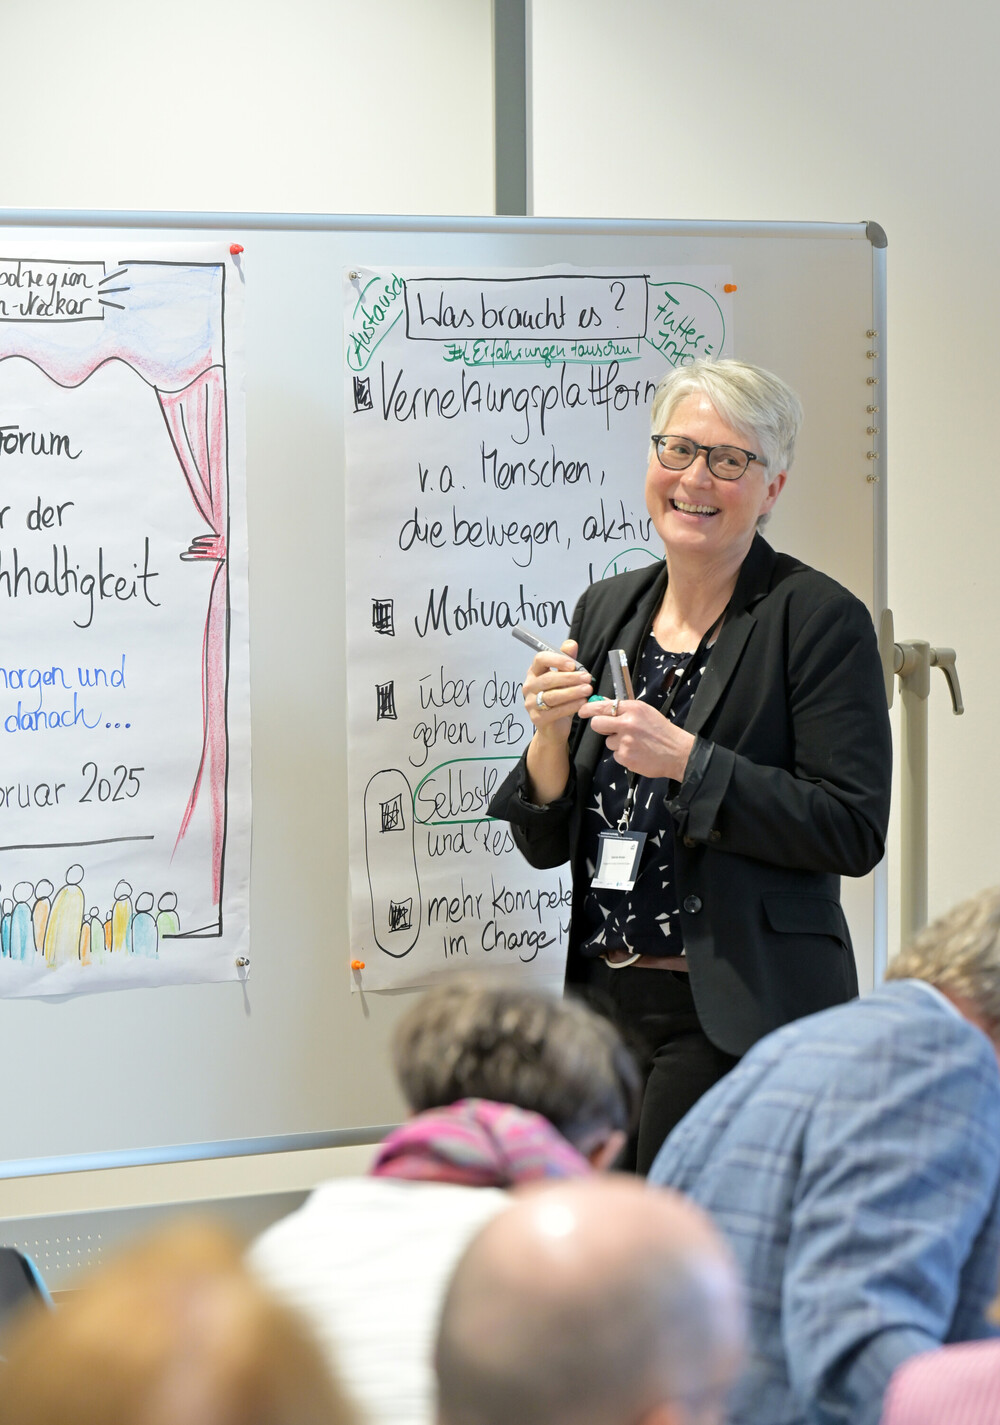 olregion
n-Neckar
Forum
r der
hhaltigkeit
morgen und
danach...
bruar 2025
Austausch
Was braucht es?
Futter =
Info
Erfahrungen tauschen!
Vernetzungsplattform
v.a. Menschen,
die bewegen, aktiv
Motivation
über den
gehen, zB
Selbst
und Res
mehr Kompete
im Change